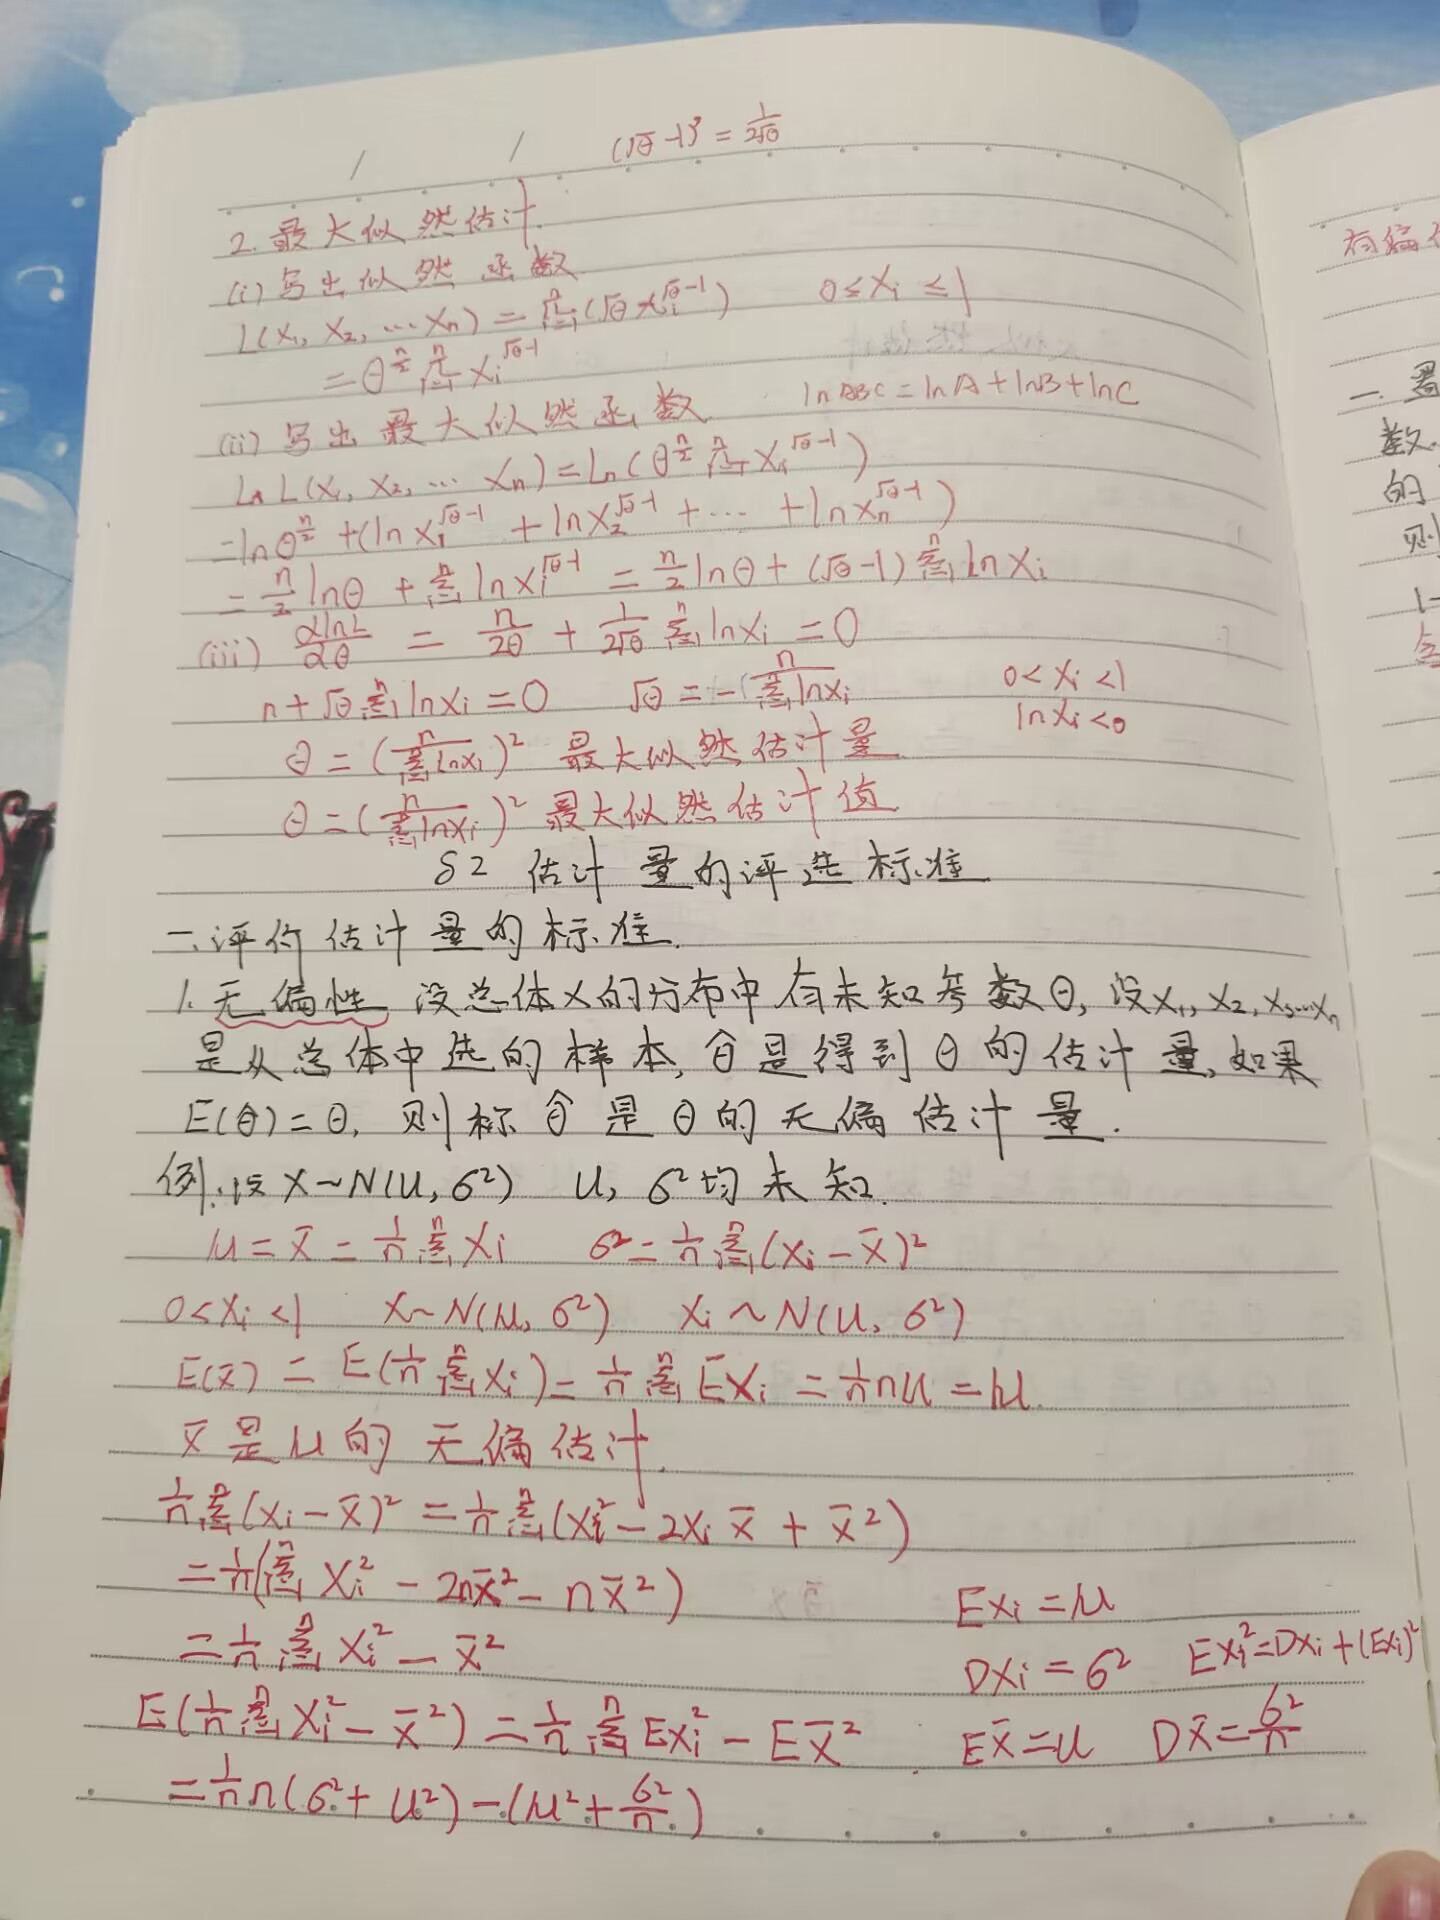 (√θ-1)' = 1/(2√θ)
2. 最大似然估计.
(i) 写出似然函数
L(x₁, x₂, …xₙ) = ∏ⁿᵢ₌₁(√θ xᵢ^(√θ-1)) 0≤Xᵢ≤1
= θ^(n/2) ∏ⁿᵢ₌₁ Xᵢ^(√θ-1)
(ii) 写出最大似然函数 lnABC = lnA+lnB+lnC
Ln L(x₁, x₂, … xₙ) = Ln(θ^(n/2) ∏ⁿᵢ₌₁ Xᵢ^(√θ-1))
= lnθ^(n/2) + (lnx₁^(√θ-1) + lnx₂^(√θ-1) + … + lnxₙ^(√θ-1))
= n/2 lnθ + Σⁿᵢ₌₁ lnxᵢ^(√θ-1) = n/2 lnθ + (√θ-1) Σⁿᵢ₌₁ lnXᵢ
(iii) dlnL/dθ = n/(2θ) + 1/(2√θ) Σⁿᵢ₌₁ lnXᵢ = 0
n+√θ Σⁿᵢ₌₁ lnXᵢ = 0 √θ = - n/(Σⁿᵢ₌₁ lnxᵢ) 0<Xᵢ<1
lnXᵢ<0
θ = (n/(Σⁿᵢ₌₁ lnXᵢ))² 最大似然估计量
θ = (n/(Σⁿᵢ₌₁ lnxᵢ))² 最大似然估计值
§2 估计量的评选标准
一.评价估计量的标准.
1.无偏性 设总体X的分布中有未知参数θ, 设X₁, X₂, X₃…Xₙ
是从总体中选的样本, θ̂是得到θ的估计量, 如果
E(θ̂)=θ, 则称θ̂是θ的无偏估计量.
例.设X~N(u, σ²) u, σ²均未知.
μ = x̄ = 1/n Σⁿᵢ₌₁ Xᵢ σ² = 1/n Σⁿᵢ₌₁ (Xᵢ-X̄)²
0<Xᵢ<1 X~N(μ, σ²) Xᵢ~N(u, σ²)
E(x̄) = E(1/n Σⁿᵢ₌₁ Xᵢ) = 1/n Σⁿᵢ₌₁ EXᵢ = 1/n nu = μ.
x̄是μ的无偏估计.
1/n Σⁿᵢ₌₁ (Xᵢ-X̄)² = 1/n Σⁿᵢ₌₁ (Xᵢ² - 2Xᵢ X̄ + X̄²)
= 1/n(Σⁿᵢ₌₁ Xᵢ² - 2nX̄² - nX̄²) EXᵢ = μ
= 1/n Σⁿᵢ₌₁ Xᵢ² - X̄² DXᵢ = σ² EXᵢ² = DXᵢ + (EXᵢ)²
E(1/n Σⁿᵢ₌₁ Xᵢ² - X̄²) = 1/n Σⁿᵢ₌₁ EXᵢ² - EX̄² EX̄ = u DX̄ = σ²/n
= 1/n n(σ² + u²) - (μ² + σ²/n)
有偏
一.
数.
的
则